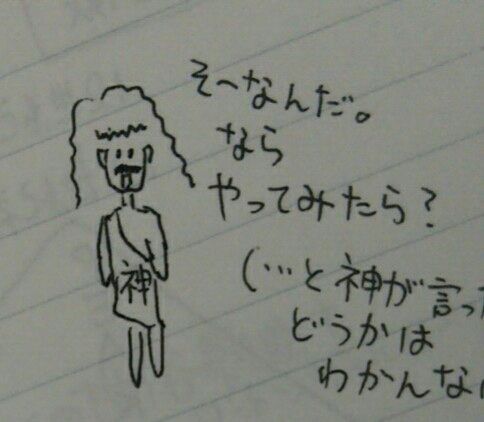 そーなんだ。
なら
やってみたら?
神
(…と神が言っ
どうかは
わかんな